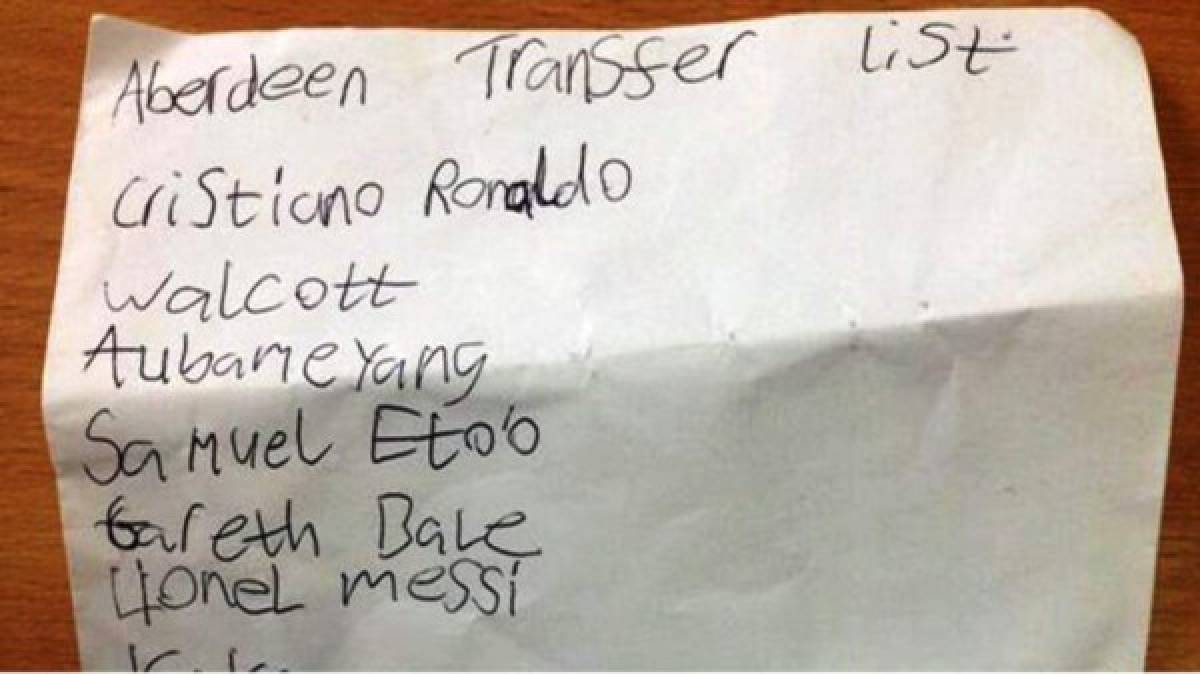 Aberdeen Transfer List
Cristiano Ronaldo
Walcott
Aubameyang
Samuel Eto'o
Gareth Bale
Lionel messi